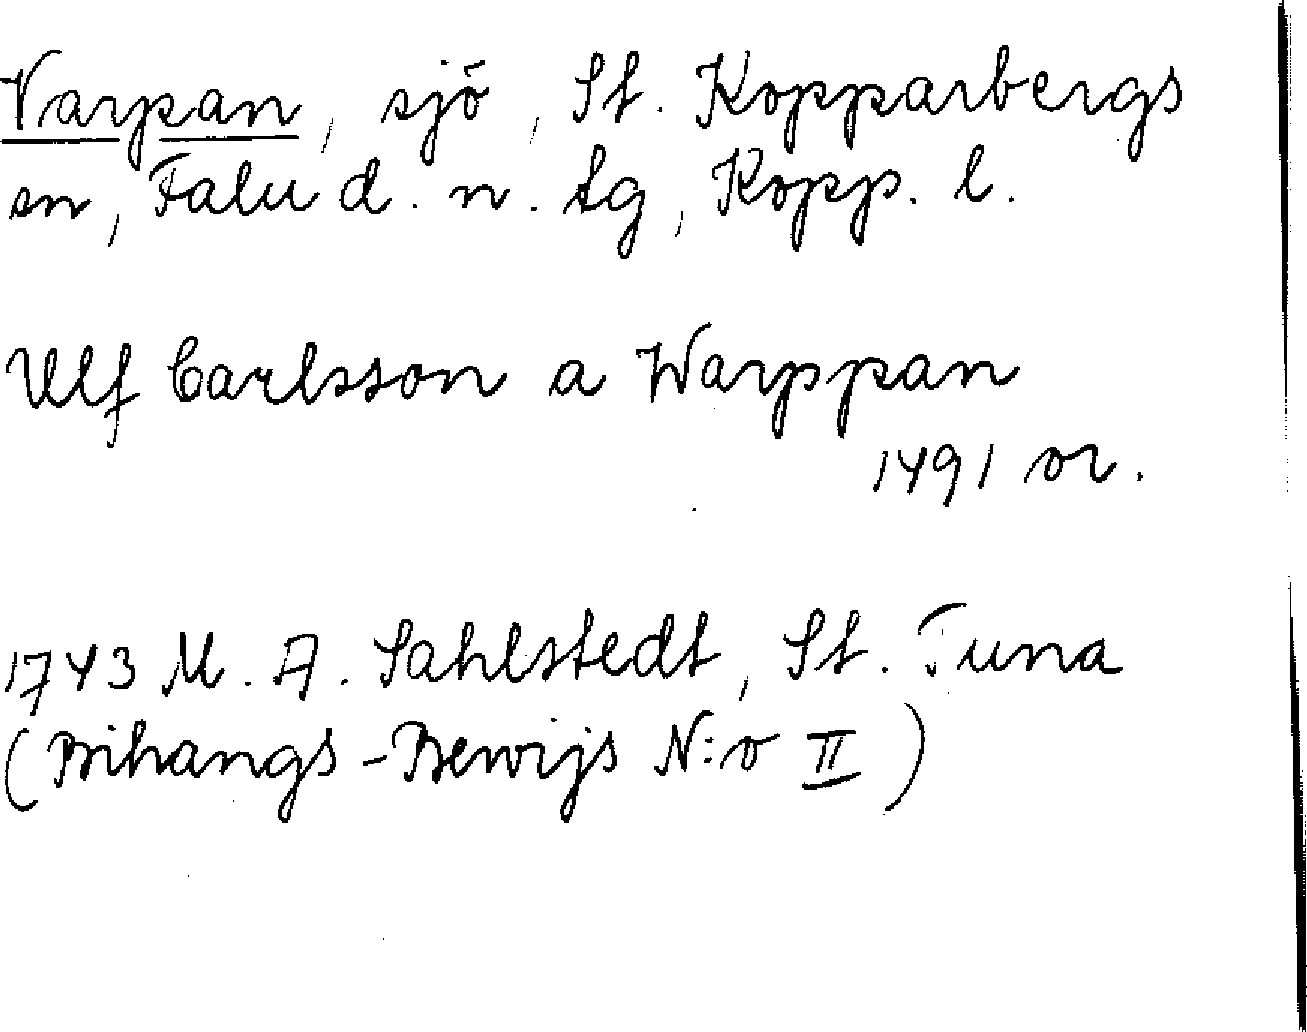 Varpan, sjö, St. Kopparbergs
sn, Falu d. n. tg, Kopp. l.
Ulf Carlsson a Warppan
1491 or.
1743 M. A. Sahlstedt, St. Tuna
(Bihangs-Bewijs N:o II)